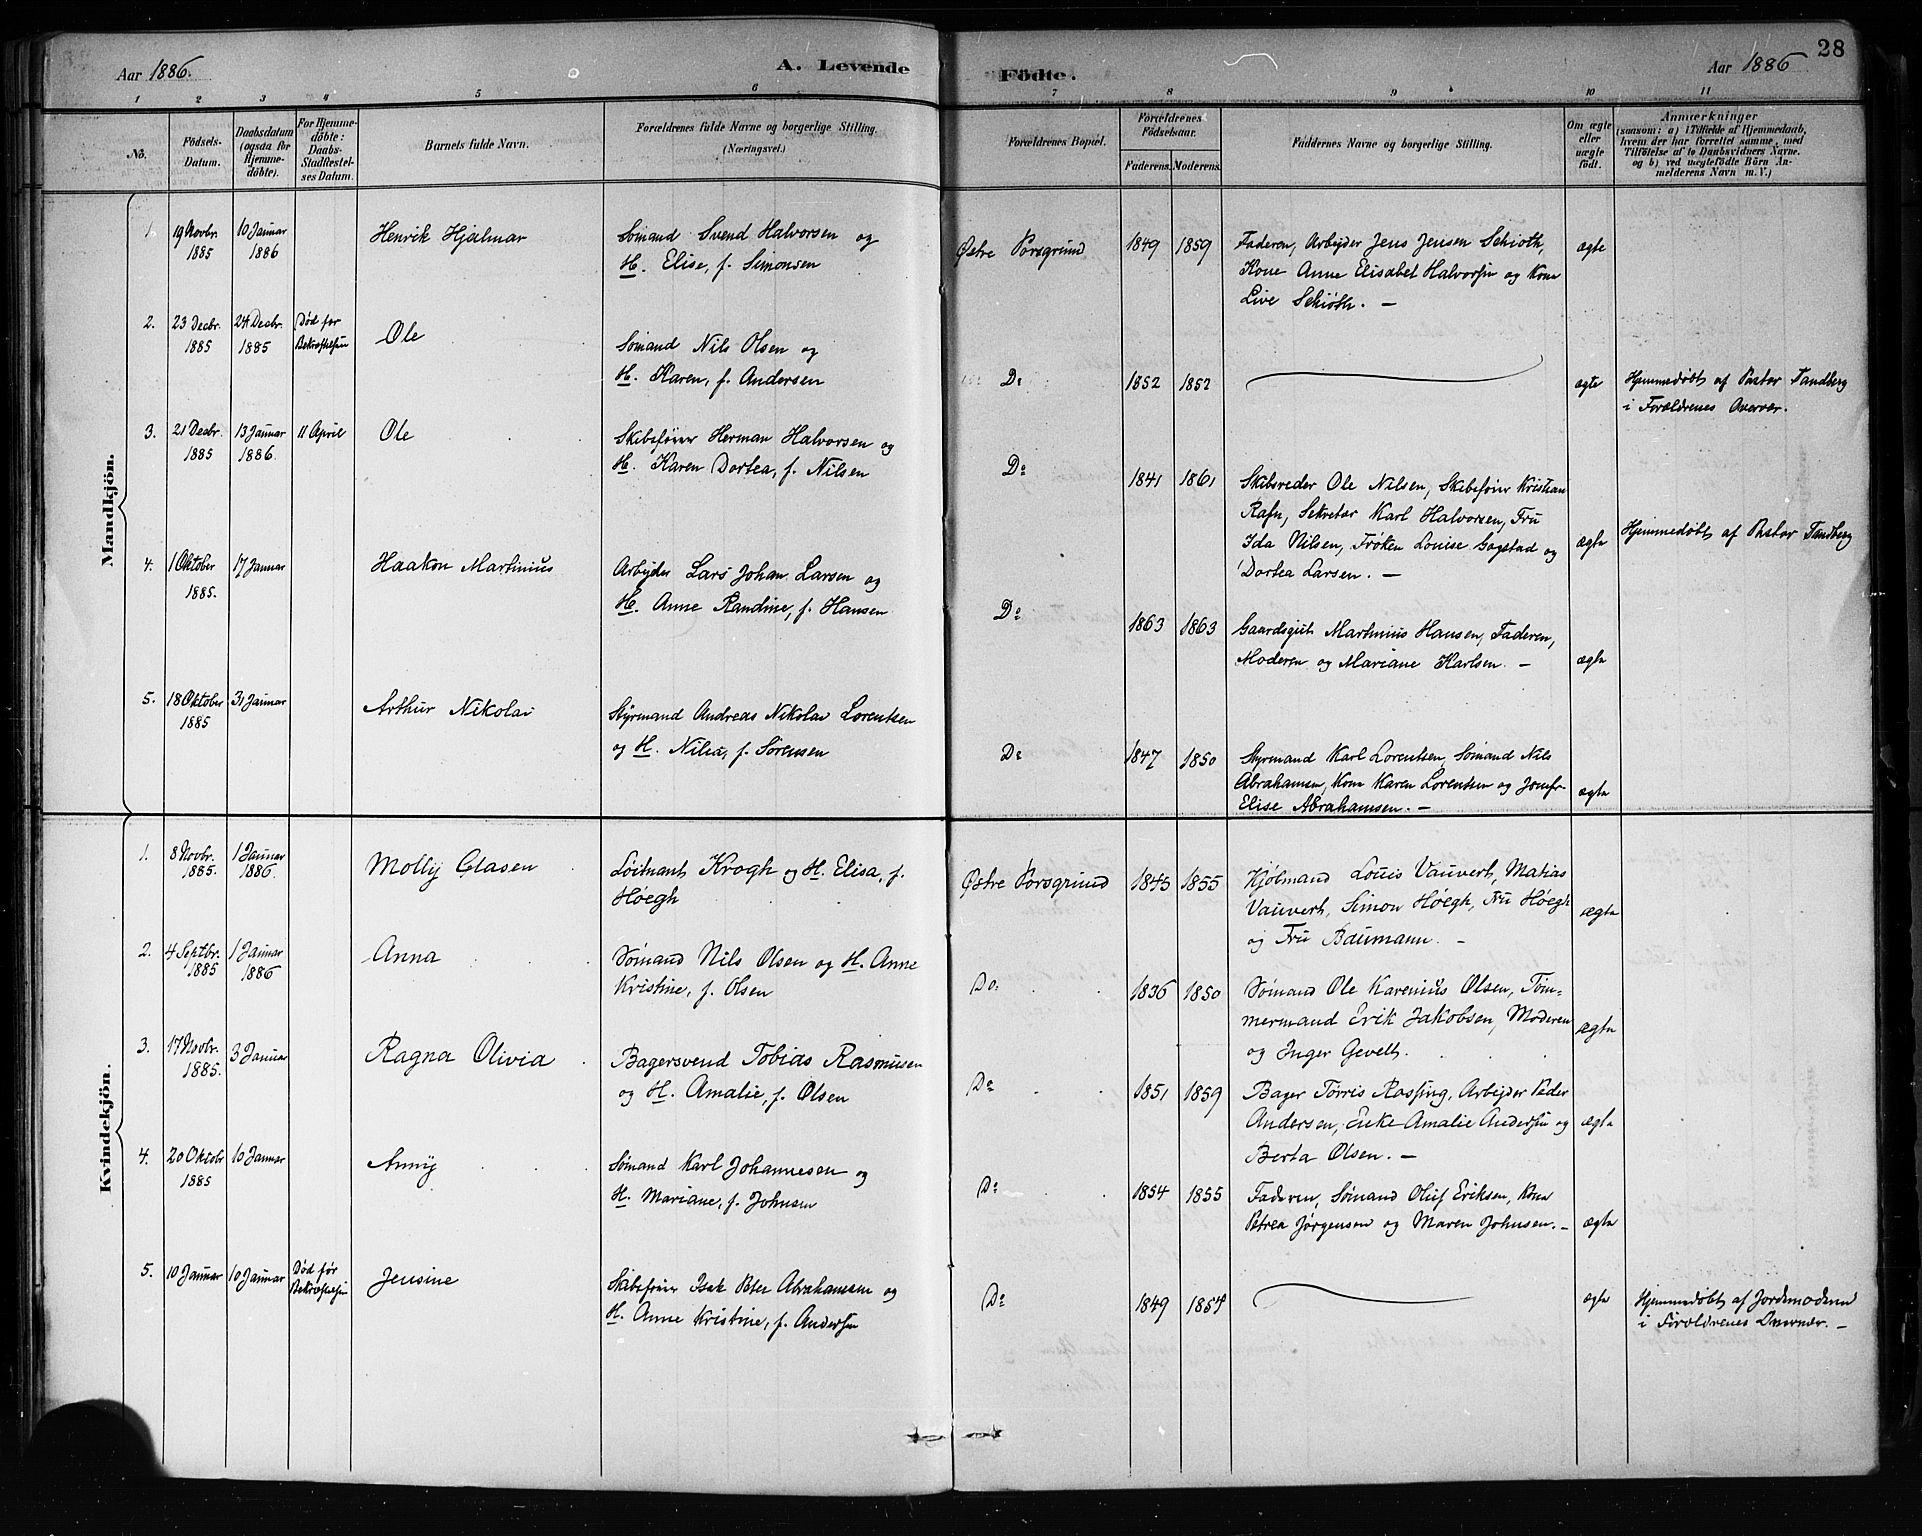 28
Aar 1886.
A. Levende
Födte.
Aar 1886
1 2 3 4 5 6 7 8 9 10 11
No.
Födsels-
Datum.
Daabsdatum
(ogsaa for
Hjemme-
döbte).
For Hjemme-
döbte:
Daabs-
Stadfæstel-
ses Datum.
Barnets fulde Navn.
Forældrenes fulde Navne og borgerlige Stilling.
(Næringsvei.)
Forældrenes Bopæl.
Forældrenes
Födselsaar.
Faderens.
Moderens.
Faddernes Navne og borgerlige Stilling.
Om ægte
eller
uægte
födt.
Anmærkninger
(saasom: a) i Tilfælde af Hjemmedaab,
hvem der har forrettet samme, med
Tilföielse af to Daabsvidners Navne.
og b) ved uægtefödte Börn An-
melderens Navn m. V.)
Mandkjön.
1. 19 Novbr. 1885
10 Januar 1886
Henrik Hjalmar
Sømand Svend Halvorsen og
H. Elise, f. Simonsen
Østre Porsgrund
1849 1859
Faderen, Arbejder Jens Jensen Schioth,
Kone Anne Elisabet Halvorsen og Kone
Live Schiøth. —
ægte
2. 23 Decbr. 1885
24 Decbr. 1885
Død før
Bekræftelsen
Ole
Sømand Nils Olsen og
H. Karen, f. Andersen
Do
1852 1852
ægte
Hjemmedøbt af Pastor Tandberg
i Forældrenes Overvær.
3. 21 Decbr. 1885
13 Januar 1886.
11 April
Ole
Skibsfører Herman Halvorsen og
H. Karen Dortea, f. Nilsen
Do
1841 1861
Skibsreder Ole Nilsen, Skibsfører Kristian
Rafn, Sekretær Karl Halvorsen, Fru
Ida Nilsen, Frøken Louise Gogstad og
Dortea Larsen. —
ægte
Hjemmedøbt af Pastor Tandberg
4. 1 Oktober 1885.
17 Januar
Haakon Martinius
Arbejder Lars Johan Larsen og
H. Anne Randine, f. Hansen
Do
1863 1863
Gaardsgut Martinius Hansen, Faderen,
Moderen og Mariane Karlsen. —
ægte
5. 18 Oktober 1885
31 Januar
Arthur Nikolai
Styrmand Andreas Nikolai Lorentsen
og H. Nilia, f. Sørensen
Do
1847 1850
Styrmand Karl Lorentsen, Sømand Nils
Abrahamsen, Kone Karen Lorentsen og Jomfr.
Elise Abrahamsen. —
ægte
Kvindekjön.
1. 8 Novbr. 1885.
1 Januar 1886.
Molly Clasen
Løitnant Krogh og H. Elisa, f.
Høegh
Østre Porsgrund
1845 1855
Kjøbmand Louis Vauvert, Matias
Vauvert, Simon Høegh, Fru Høegh
og Fru Baumann. —
ægte
2. 4 Septbr. 1885
1 Januar 1886
Anna
Sømand Nils Olsen og H. Anne
Kristine, f. Olsen
Do.
1836 1850
Sømand Ole Karenius Olsen, Tøm-
mermand Erik Jakobsen, Moderen
og Inger Gevelt.
ægte
3. 17 Novbr. 1885.
3 Januar
Ragna Olivia
Bagersvend Tobias Rasmussen
og H. Amalie, f. Olsen
Do
1851 1859
Bager Tørris Rossing, Arbejder Peder
Andersen, Enke Amalie Andersen og
Berta Olsen. —
ægte
4. 20 Oktobr 1885
10 Januar
Anny
Sømand Karl Johannesen og
H. Mariane, f. Johnsen
Do
1854 1855
Faderen, Sømand Oluf Eriksen, Kone
Petrea Jørgensen og Maren Johnsen. —
ægte
5. 10 Januar
10 Januar
Død før
Bekræftelsen
Jensine
Skibsfører Isak Peter Abrahamsen og
H. Anne Kristine, f. Andersen
Do
1849 1854
ægte
Hjemmedøbt af Jordemoderen
i Forældrenes Overvær. —